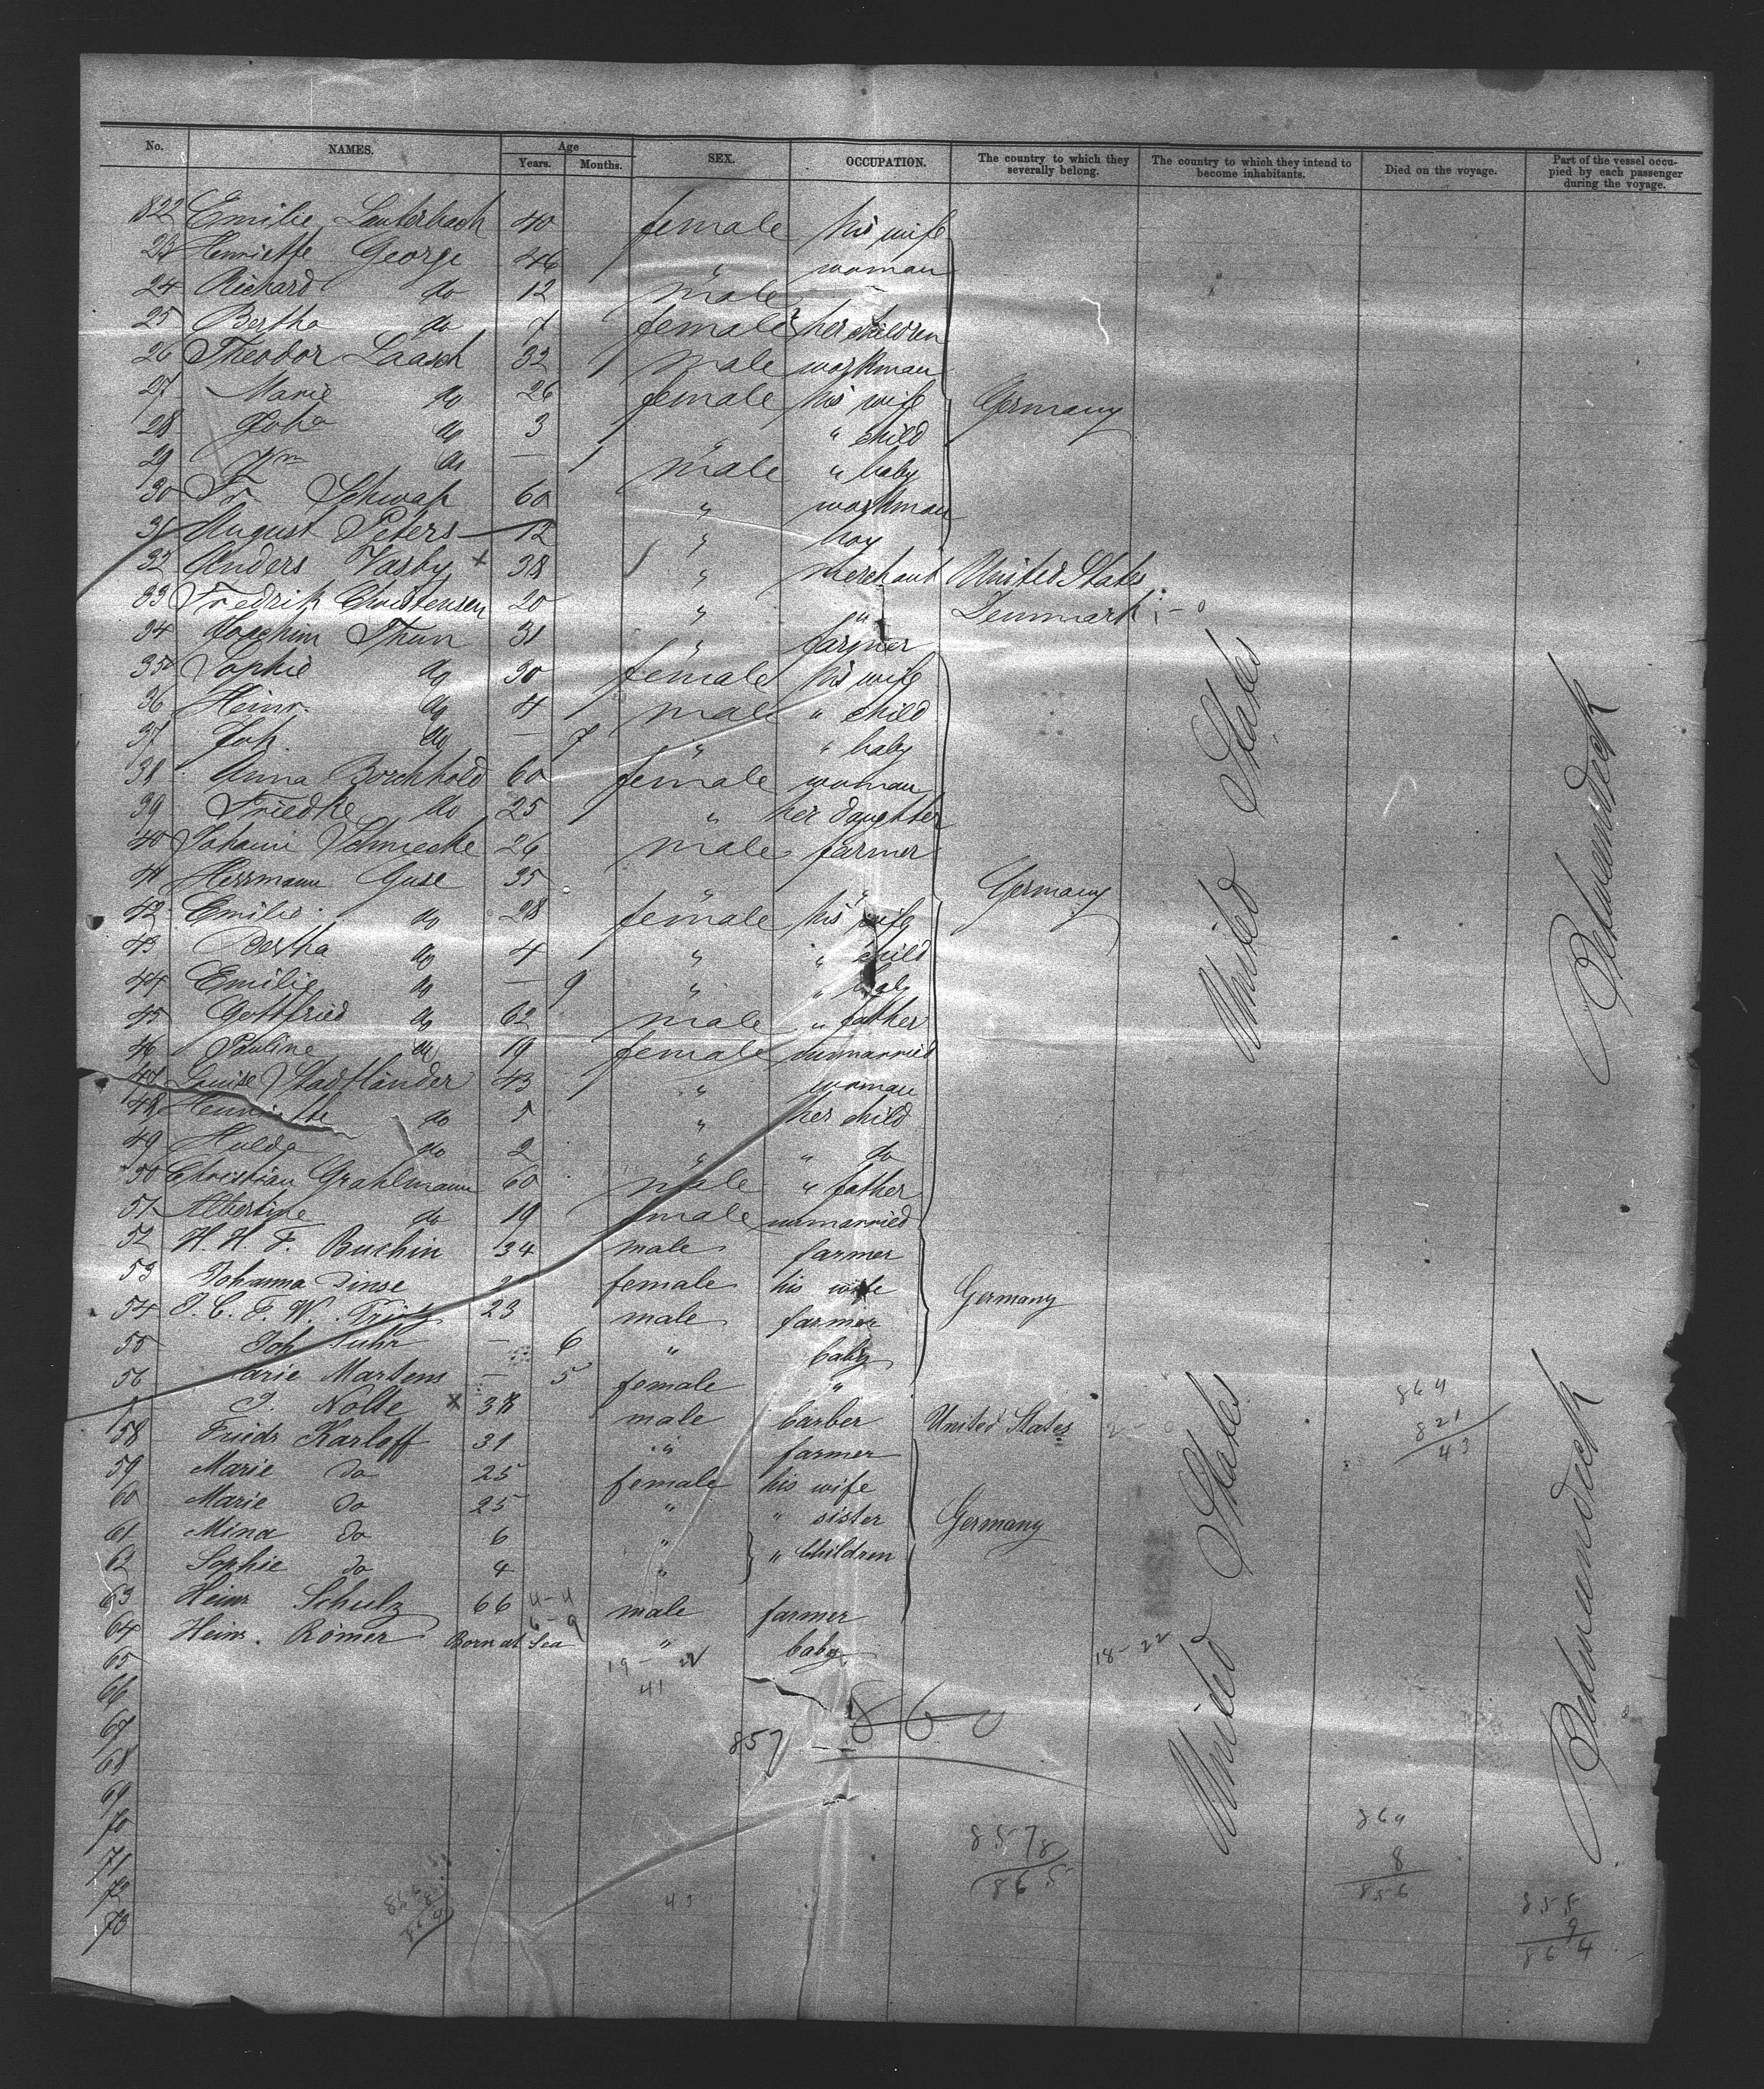 No. NAMES. Age Years. Months. SEX. OCCUPATION. The country to which they severally belong. The country to which they intend to become inhabitants. Died on the voyage. Part of the vessel occupied by each passenger during the voyage.
822 Emilie Lauterbach 40 female his wife
23 Henriette George 46 " woman
24 Richard do 12 male
25 Bertha do 7 female her children
26 Theodor Laasch 32 male workman
27 Marie do 26 female his wife Germany
28 do 3 " " child
29 do — 1 male " baby
30 Fr. Schwass 60 " workman
31 August Peters 12 " boy
32 Anders Vasby x 38 " merchant United States
33 Fredrik Christensen 20 " " Denmark
34 Joachim Thun 31 " farmer
35 Sophie do 30 female his wife
36 Heinr. do 4 male " child
37 Joh. do — 7 " " baby
38 Anna Borchhold 60 female woman
39 Friedke do 25 " her daughter
40 Schmecke 26 male farmer
41 Herrmann Guse 35 " " Germany
42 Emilie do 28 female his wife
43 Bertha do 4 " " child
44 Emilie do — 9 " " baby
45 Gottfried do 62 male " father
46 Pauline do 19 female unmarried
47 Louise Stadtländer 43 " woman
48 Henriette do 5 " her child
49 Hulda do 2 " " do
50 Christian Grahlmann 60 male " father
51 Albertine do 19 female unmarried
52 H. H. F. Buchin 34 male farmer
53 Johanna Dinse female his wife Germany
54 J. C. F. W. 23 male farmer
55 Joh — 6 " baby
56 Marie Martens — 5 female "
J. Nolte x 38 male barber United States
58 Friedr Karloff 31 " farmer
59 Marie do 25 female his wife
60 Marie do 25 " " sister Germany
61 Mina do 6 " " Children
62 Sophie do 4 "
63 Heinr Schulz 66 male farmer
64 Heinr. Römer Born at Sea " baby
65
66
67
68
69
70
71
72
73
United States
Betweendeck
United States
Betweendeck
864
821
43
4-4
6-9
19-
41
18-22
860
857
8578
865
864
8
856
858
9
864